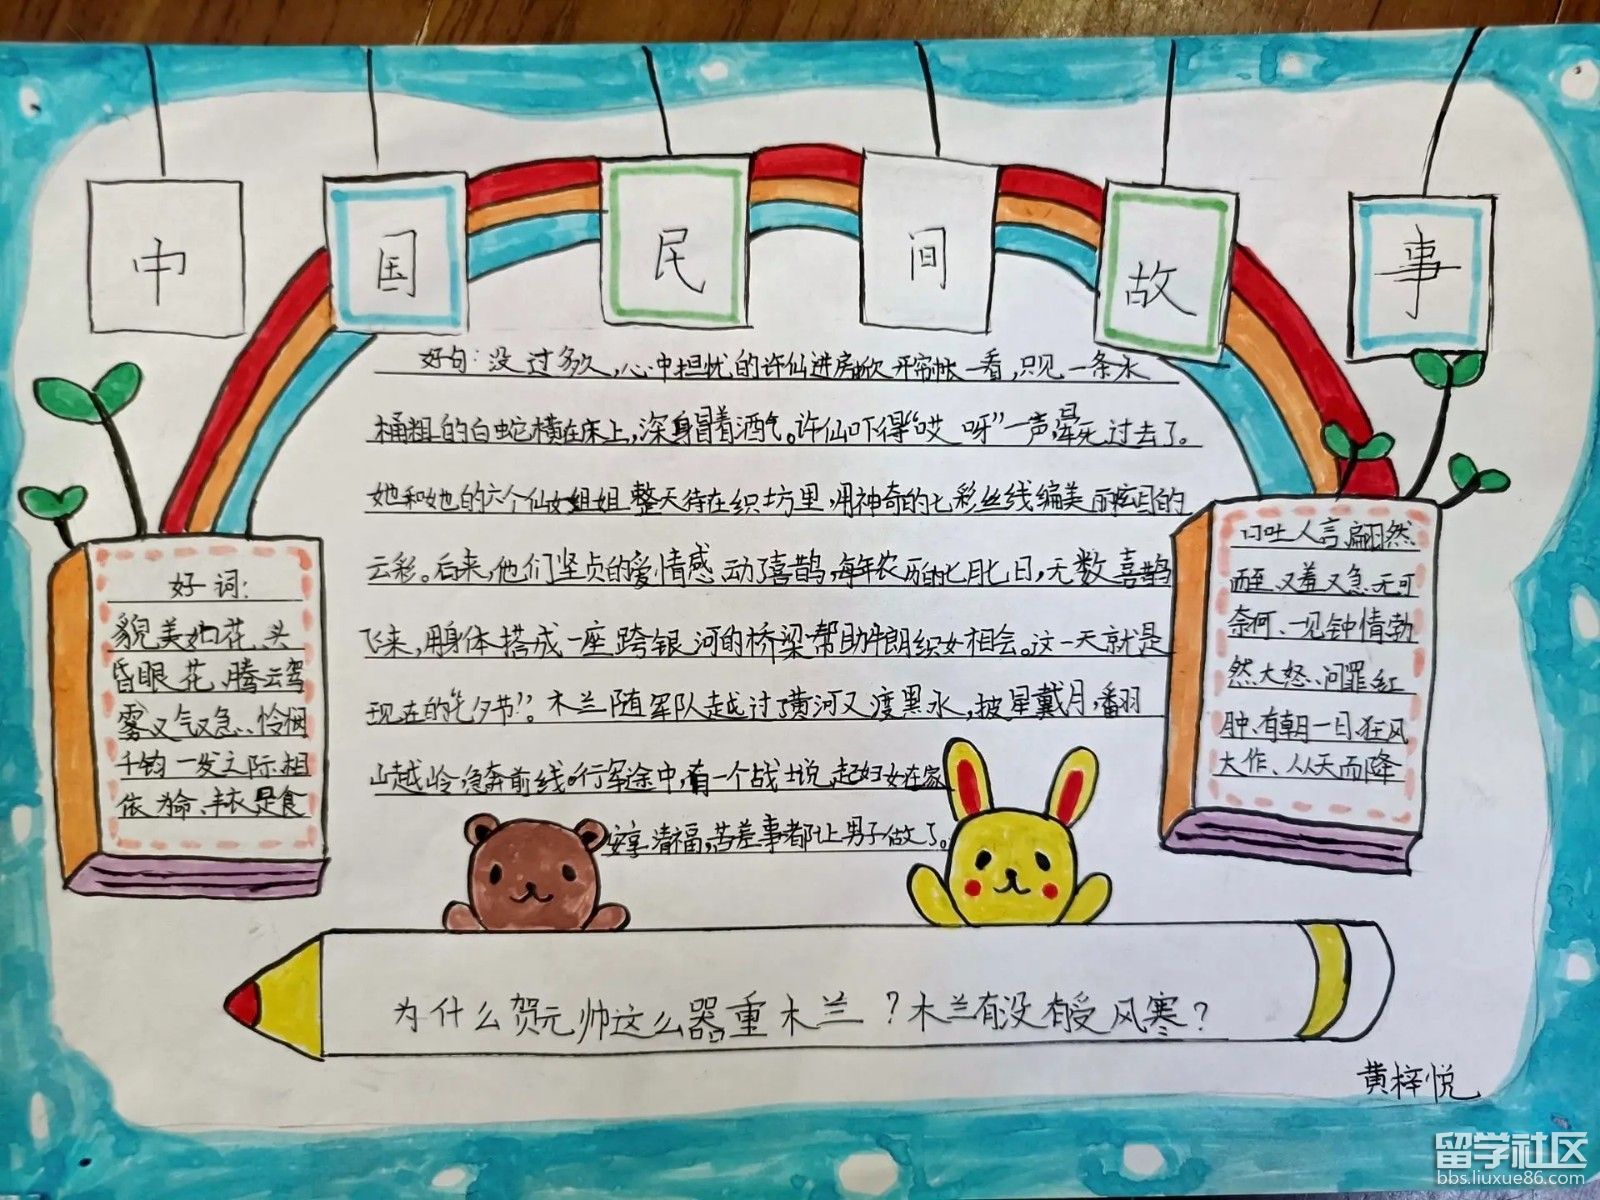 中国民间故事
好句：没过多久，心中担忧的许仙进房掀开帘帐一看，只见一条水
桶粗的白蛇横在床上，浑身冒着酒气。许仙吓得“哎呀”一声，晕死过去了。
她和她的六个仙女姐姐整天待在织坊里，用神奇的七彩丝线编美丽眩目的
云彩。后来，他们坚贞的爱情感动了喜鹊，每年农历的七月七日，无数喜鹊
飞来，用身体搭成一座跨银河的桥梁帮助牛朗织女相会。这一天就是
现在的“七夕节”。木兰随军队越过了黄河又渡黑水，披星戴月，翻
山越岭，急奔前线。行军途中，有一个战士说，起妇女在家
安享清福，苦差事都让男子做了。
好词：
貌美如花、头
昏眼花、腾云驾
雾、又气又急、怜悯
千钧一发之际、相
依为命、丰衣足食
口吐人言、翩然
而至、又羞又急、无可
奈何、一见钟情、勃
然大怒、问罪、红
肿、有朝一日、狂风
大作、从天而降
为什么贺元帅这么器重木兰？木兰有没有受风寒？
黄梓悦
留学社区
bbs.liuxue86.com